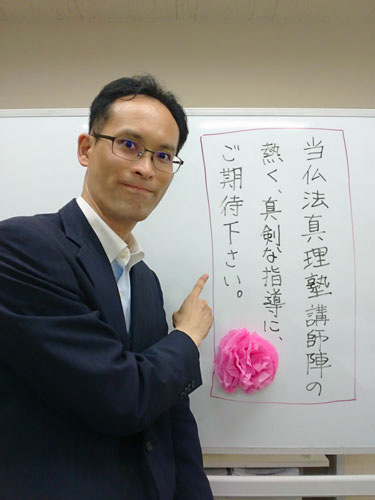 当仏法真理塾講師陣の
熱く、真剣な指導に、
ご期待下さい。